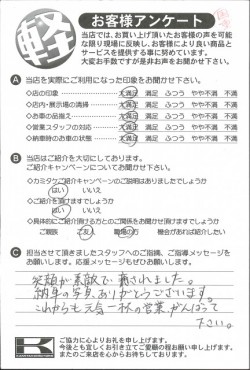 軽
お客様アンケート
当店では、お買い上げ頂いたお客様の声を可能
な限り現場に反映し、お客様により良い商品と
サービスを提供する事に努めています。
大変お手数ですが是非お声をお聞かせ下さい。
A 当店を実際にご利用になった印象をお聞かせ下さい。
◇店の印象 大満足 満足 ふつう やや不満 不満
◇店内・展示場の清掃 大満足 満足 ふつう やや不満 不満
◇お車の品揃え 大満足 満足 ふつう やや不満 不満
◇営業スタッフの対応 大満足 満足 ふつう やや不満 不満
◇納車時のお車の状態 大満足 満足 ふつう やや不満 不満
B 当店はご紹介を大切にしております。
ご紹介キャンペーンについてお聞かせ下さい。
◇カミタケご紹介キャンペーンのご説明はありましたでしょうか
はい いいえ
◇ご紹介を頂けますでしょうか
はい いいえ
◇具体的にご紹介頂ける方とのご関係をお聞かせ頂けますでしょうか
ご親族 ご友人 職場の方 機会があれば紹介したい
C 担当させて頂きましたスタッフへのご指摘、ご指導メッセージを
お願いします。応援メッセージもぜひお願いします。
笑顔が素敵で癒されました。
納車の写真、ありがとうございます。
これからも元気一杯の営業、がんばって
下さい。
K
ご協力に心よりお礼を申し上げます。
今後とも宜しくお引き立てご愛顧の程お願い申し上げます。
またのご来店を心からお待ちしております。